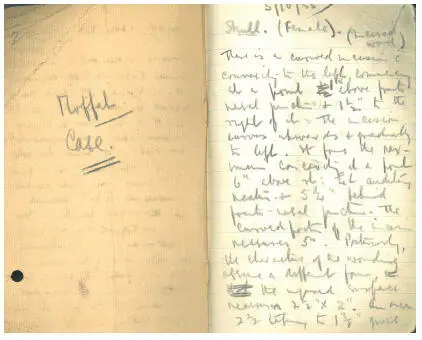 Moffat
Case.
5/10/35
Skull. (Female). (Incised
wound)
There is a curved incision c
convexity to the left, commencing
at a point 1" above fronto
nasal junction & 1½" to the
right of it. The incision
curves upwards & gradually
to left. It forms the max-
imum convexity at a point
6" above left auditory
meatus & 5¾" behind
fronto-nasal junction. The
curved part of the incision
measures 5". Posteriorly,
the characters of the wounding
assume a different form,
the exposed surface
measures 2" an
to 1¾"